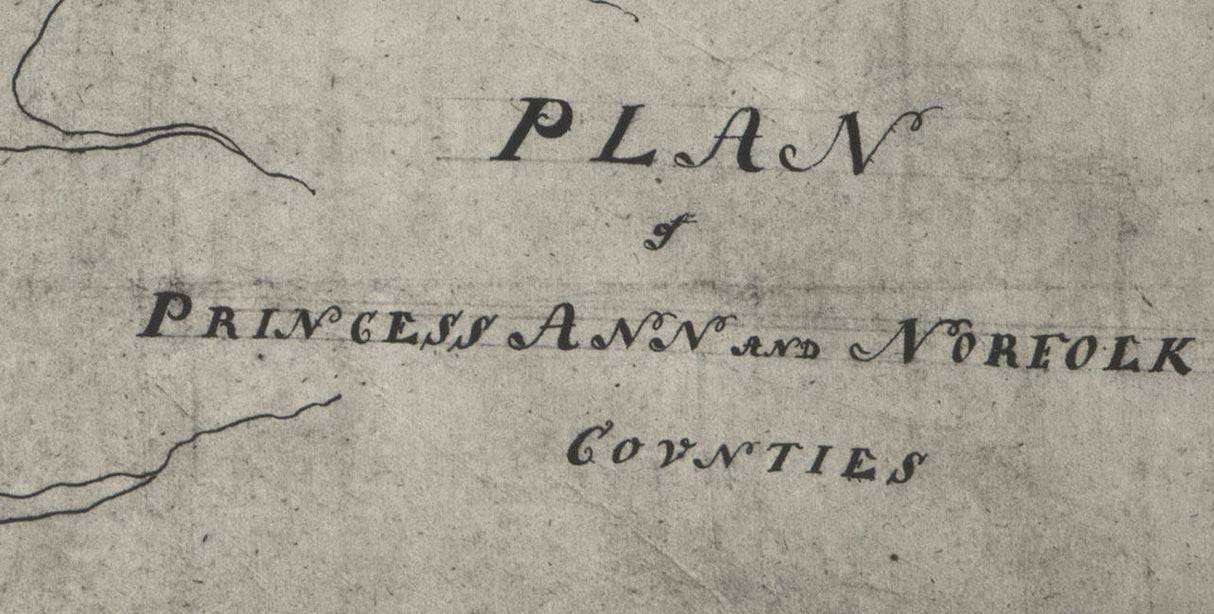 PLAN
of
PRINCESS ANN AND NORFOLK
COVNTIES